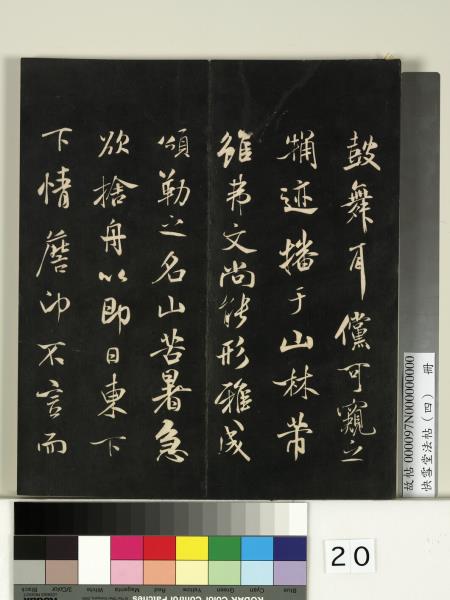 鼓舞耳儻可窺之
犕迹播于山林帶
雖弗文尚能形雅成
頌勒之名山苦暑急
欲捨舟以即日東下
下情詹仰不言而
故帖000097N000000000
快雪堂法帖（四） 冊
20
KODAK Color Control Patches
Blue Cyan Green Yellow Red Magenta White 3/Color Black